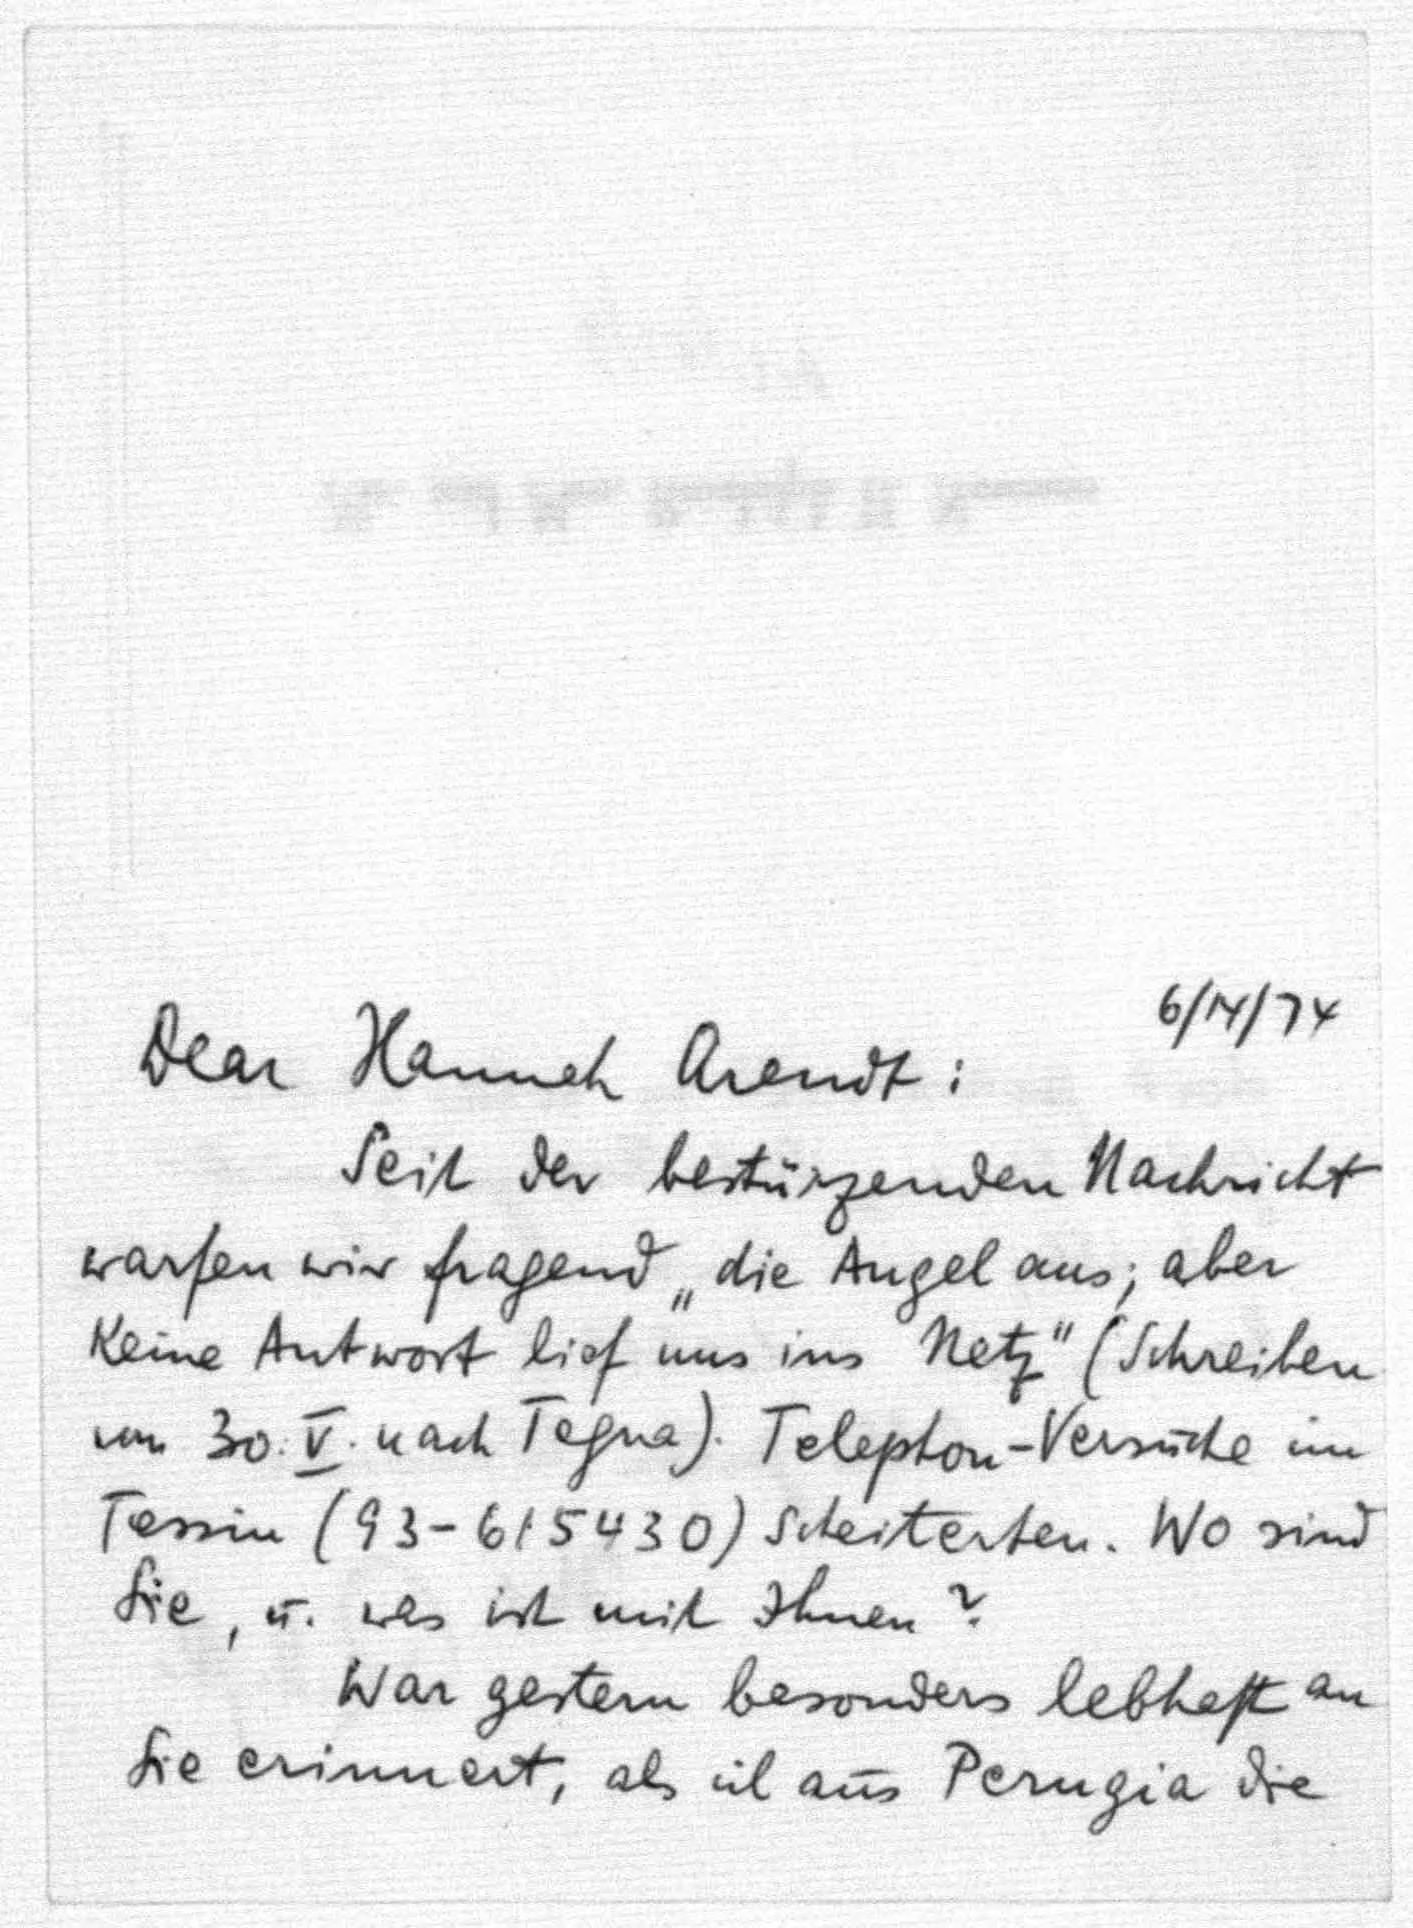 6/14/74
Dear Hannah Arendt:
Seit der bestürzenden Nachricht
warfen wir fragend „die Angel aus; aber
Keine Antwort lief uns ins Netz" (Schreiben
vom 30. V. nach Tegna). Telephon-Versuche im
Tessin (93-615430) scheiterten. Wo sind
Sie, u. was ist mit Ihnen?
War gestern besonders lebhaft an
Sie erinnert, als ich aus Perugia die